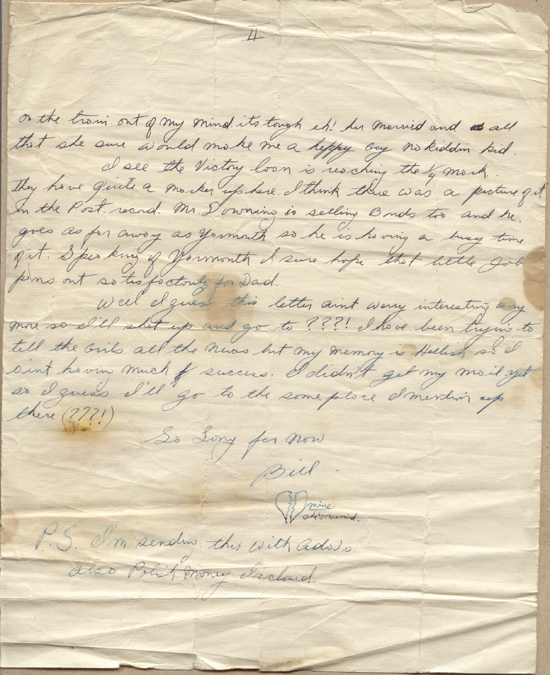 II
on the train out of my mind. its tough eh! her married and all
that she sure would make me a happy guy no kiddin kid.
I see the Victory loan is reaching the 1/4 mark.
they have quite a marker up here. I think there was a picture of it
in the Post record. Mr. Downing is selling Bonds too and he
goes as far away as Yarmouth so he is having a busy time
of it. Speaking of Yarmouth I sure hope that little Job
pans out satisfactorily for Dad.
Well I guess this letter aint werry interesting any
more so I'll shut up and go to ???! I have been trying to
tell the Girls all the news but my memory is Hellish so I
aint having much success. I didn't get my mail yet
so I guess I'll go to the same place I mention up
there (???!)
So Long for now
Bill.
mine
she's married.
P.S. I'm sending this with Ado's.
also Polish Money Inclosed